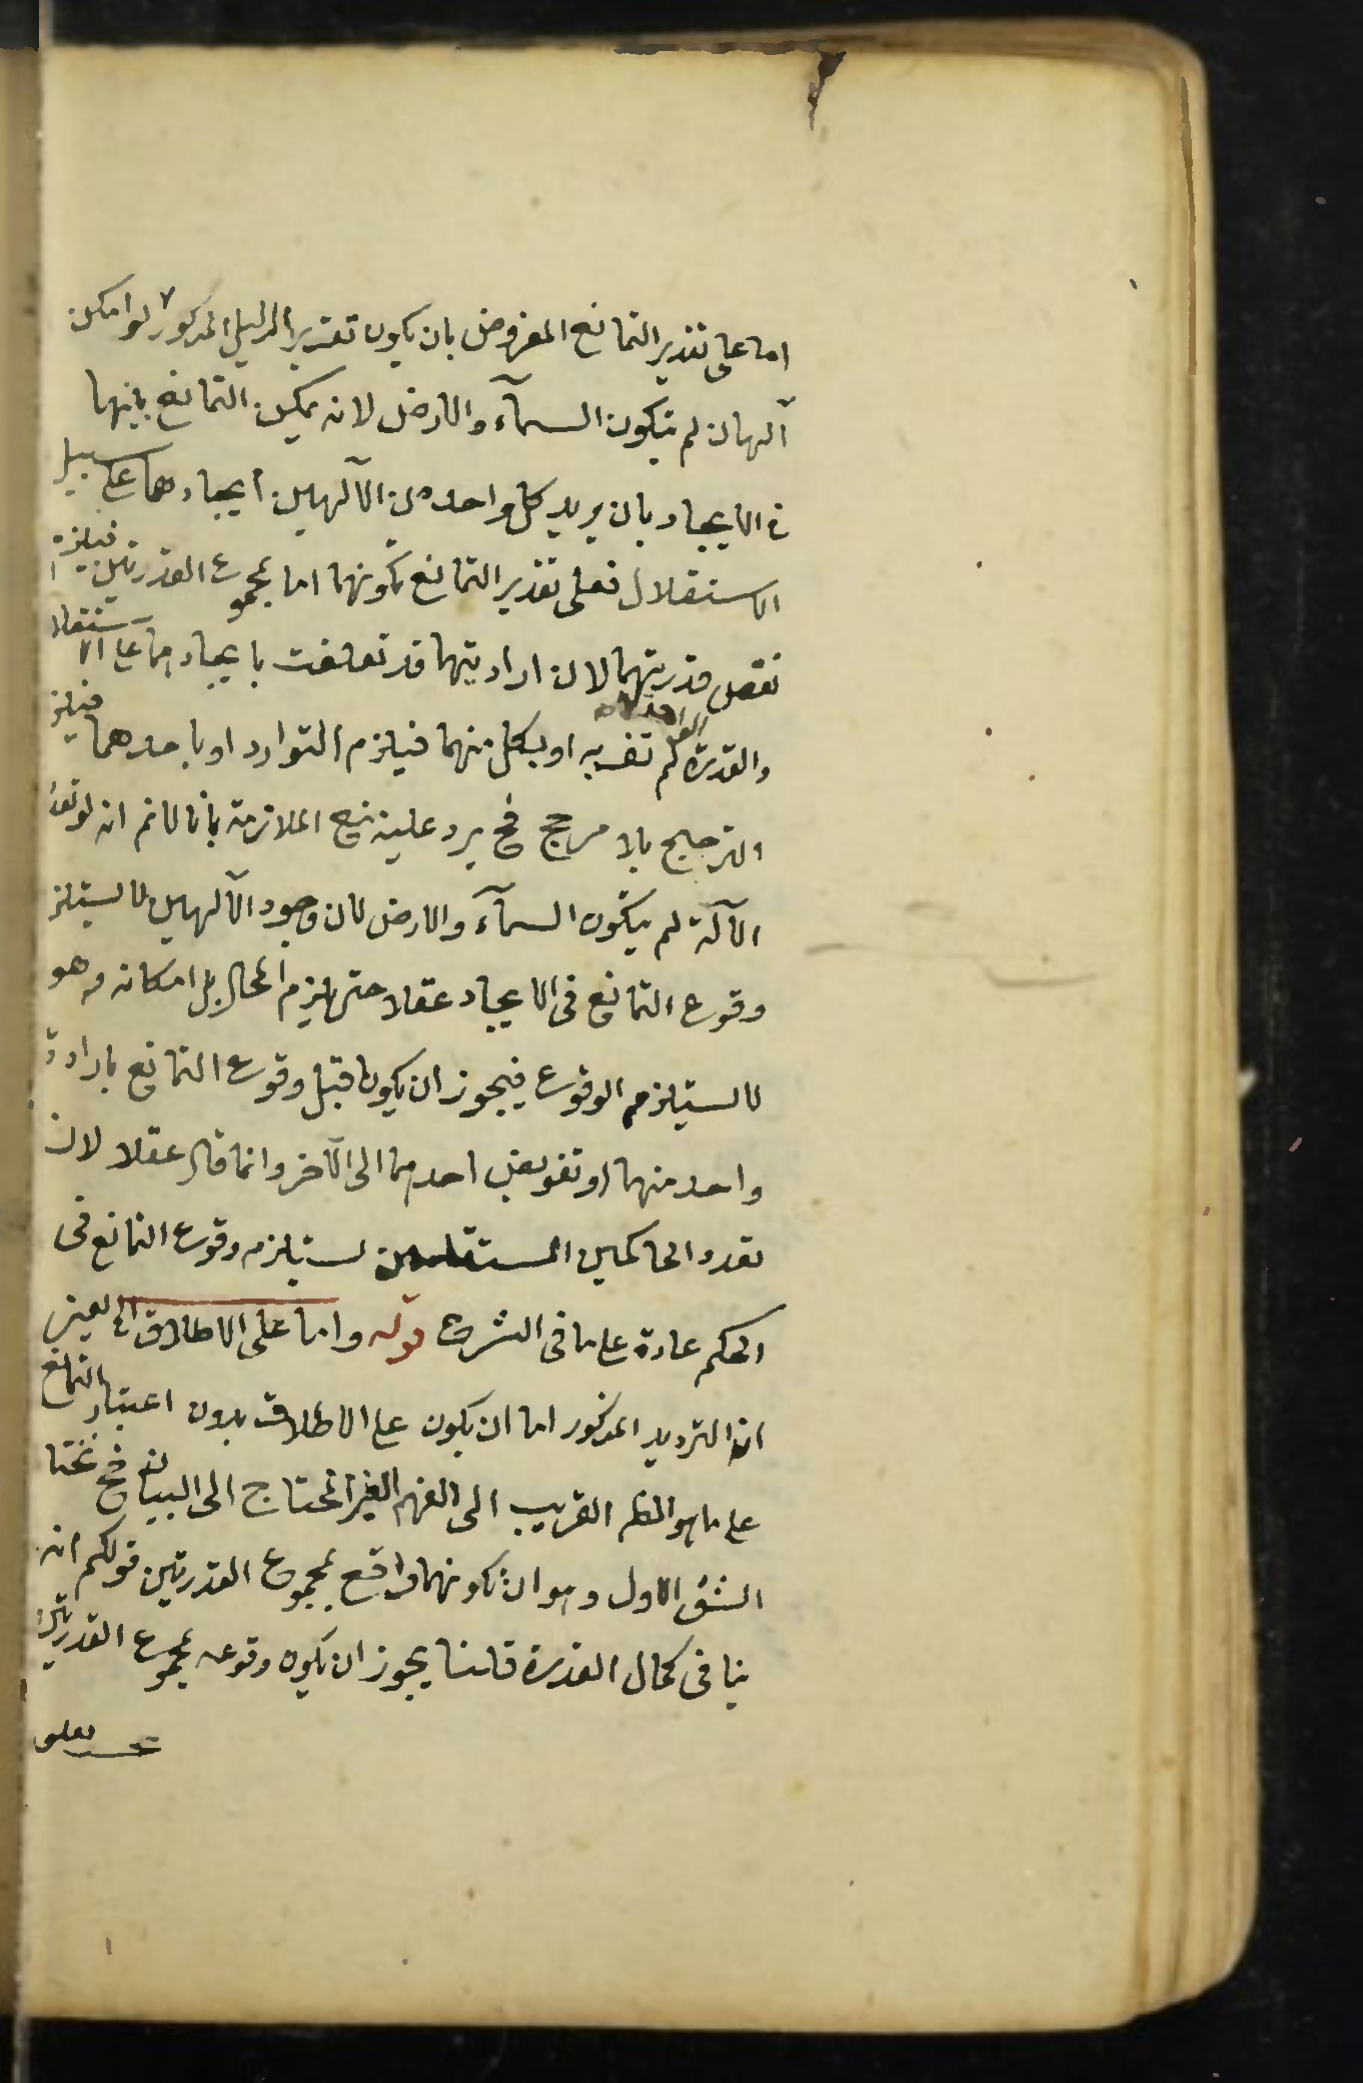 اما على تقدير التمانع المفروض بان يكون تقرير الدليل المذكور لو امكن
آلهان لم يتكون السمآء والارض لانه يمكن التمانع بينهما
في الايجاد بان يريد كل واحد من الآلهين ايجادهما على سبيل
الاستقلال فعلى تقدير التمانع تكونهما اما بمجموع القدرتين فيلزم
نقص قدرتهما لان ارادتيهما قد تعلقت بايجادهما على الاستقلا
والقدرة لم تف به او بكل منهما فيلزم التوارد او باحدهما فيلز
الترجيح بلا مرجح فح يرد عليه منع الملازمة بانا لا نم انه لو تعد
الآلهة لم يتكون السمآء والارض لان وجود الآلهين لا يستلز
وقوع التمانع فى الايجاد عقلا حتى يلزم المحال بل امكانه وهو
لا يستلزم الوقوع فيجوز ان يكون قبل وقوع التمانع بارادة
واحد منهما او تفويض احدهما الى الآخر وانما قال عقلا لان
تعدد الحاكمين المستقلين يستلزم وقوع التمانع فى
الحكم عادة على ما فى الشرح قوله واما على الاطلاق الخ يعنى
ان الترديد المذكور اما ان يكون على الاطلاق بدون اعتبار التمانع
على ما هو الظ القريب الى الفهم الغير المحتاج الى البيان فح نختا
الشق الاول وهو ان تكونهما واقع بمجموع القدرتين قولكم انه
ينافى كمال القدرة قلنا يجوز ان يكون وقوعه بمجموع القدرتين